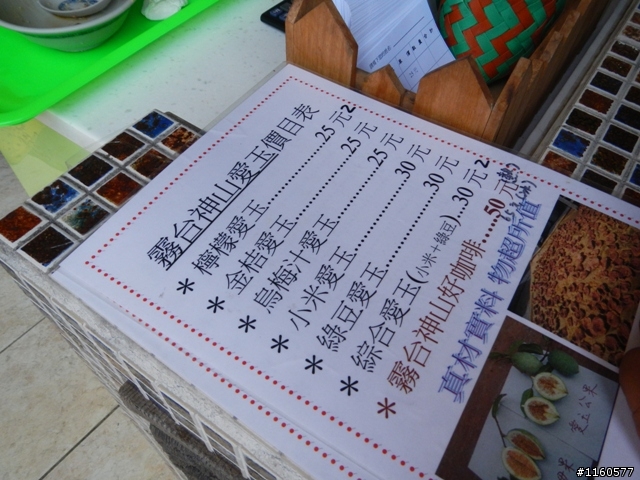 霧台神山愛玉價目表
*檸檬愛玉..........25元
*金桔愛玉..........25元
*烏梅汁愛玉........25元
*小米愛玉..........30元
*綠豆愛玉..........30元
*綜合愛玉(小米+綠豆).30元
*霧台神山好咖啡....50元
真材實料 物超所值
愛玉公果
#1160577